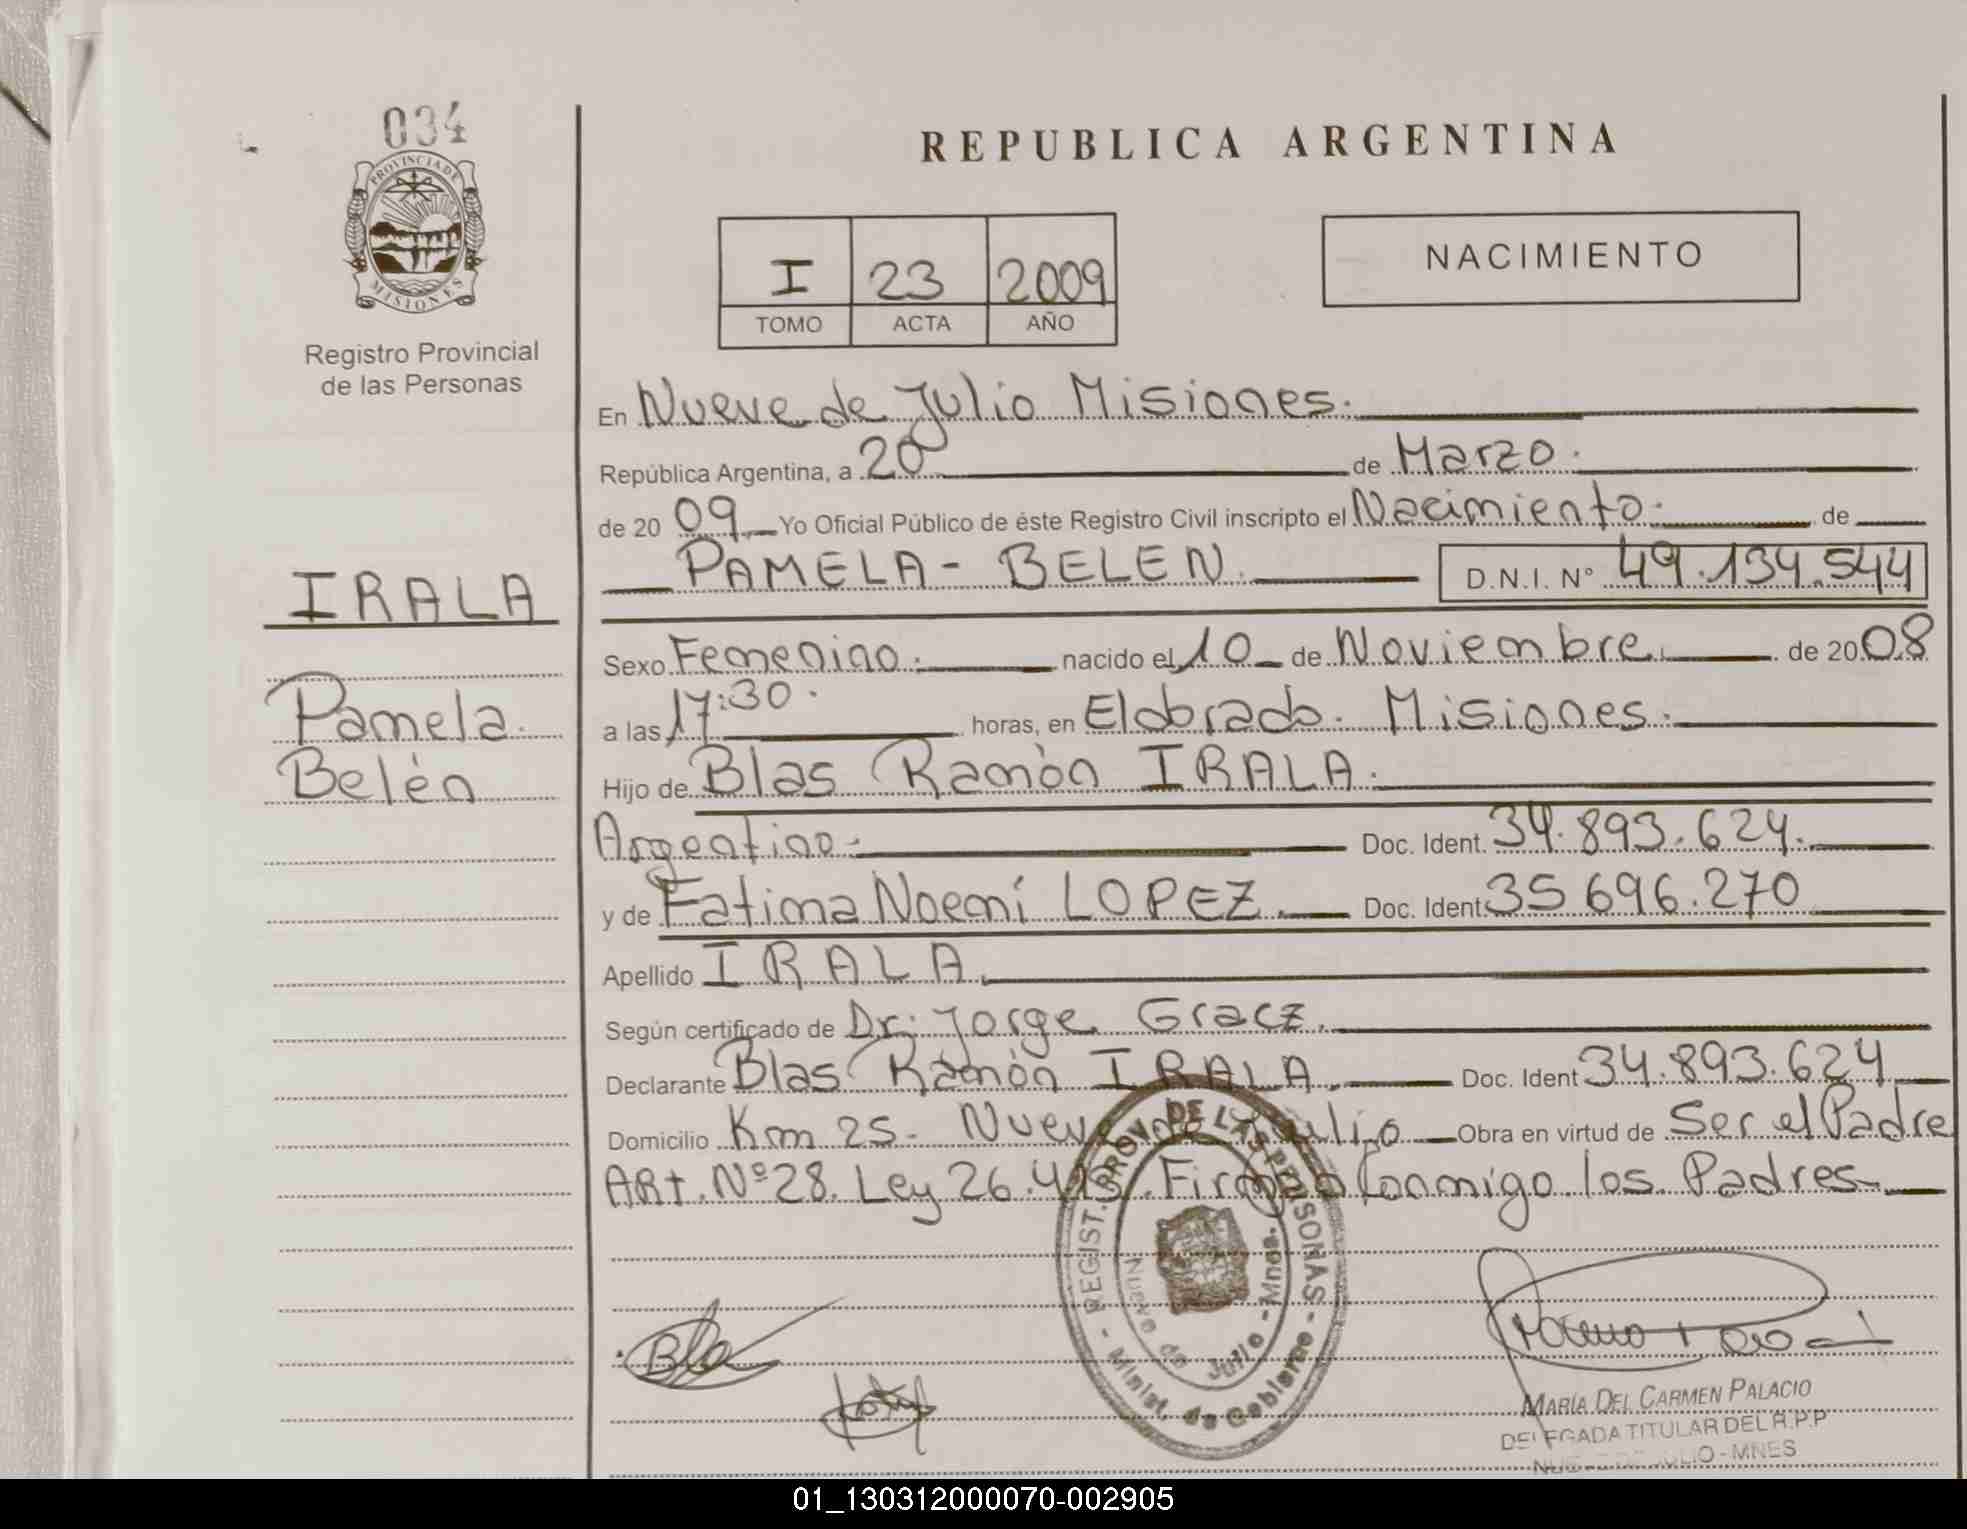 034
PROVINCIA DE
MISIONES
Registro Provincial
de las Personas
IRALA
Pamela
Belén
REPUBLICA ARGENTINA
I 23 2009
TOMO ACTA AÑO
NACIMIENTO
En Nueve de Julio Misiones.
República Argentina, a 20 de Marzo.
de 20 09 Yo Oficial Público de éste Registro Civil inscripto el Nacimiento. de
PAMELA - BELEN. D.N.I. Nº 49.134.544
Sexo Femenino. nacido el 10 de Noviembre. de 20 08
a las 17:30. horas, en Eldorado. Misiones.
Hijo de Blas Ramón IRALA.
Argentino- Doc. Ident. 34.893.624.
y de Fatima Noemí LOPEZ. Doc. Ident. 35 696.270
Apellido IRALA.
Según certificado de Dr. Jorge Gracz.
Declarante Blas Ramón IRALA. Doc. Ident 34.893.624
Domicilio Km 25- Nueve de Julio Obra en virtud de Ser el Padre
ARt. Nº 28. Ley 26.413. Firman Conmigo los Padres.
REGIST. PROV. DE LAS PERSONAS
- Minist. de Gobierno -
Nueve de Julio - Mnes.
MARÍA DEL CARMEN PALACIO
DELEGADA TITULAR DEL R.P.P
NUEVE DE JULIO - MNES
01_130312000070-002905